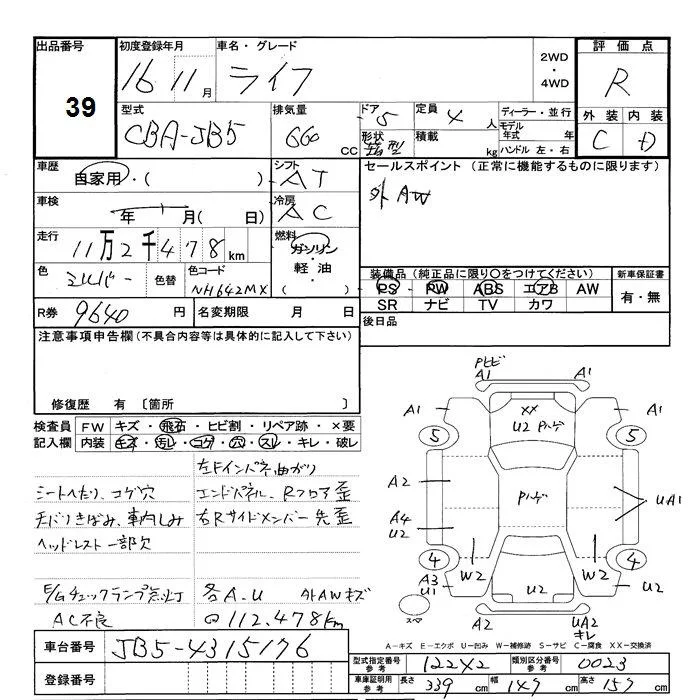 出品番号
39
初度登録年月
16 11月
車名・グレード
ライフ
2WD
・
4WD
評価点
R
型式
CBA-JB5
排気量
660 CC
ドア
5
定員
4 人
形状
箱型
積載
kg
ディーラー・並行
モデル年式 年
ハンドル 左・右
外装 内装
C D
車歴
自家用・( )
シフト
AT
セールスポイント (正常に機能するものに限ります)
外AW
車検
年 月(日)
冷房
AC
走行
11万2千478km
燃料
ガソリン・
軽油・
( )
色
シルバー
色替
色コード
NH642MX
装備品(純正品に限り○をつけてください)
PS PW ABS エアB AW
SR ナビ TV カワ
新車保証書
有・無
R券 9640 円
名変期限 月 日
後日品
注意事項申告欄(不具合内容等は具体的に記入して下さい)
修復歴 有 〔箇所 〕
検査員記入欄
FW キズ・飛石・ヒビ割・リペア跡・×要
内装 キズ・汚レ・コゲ・穴・スレ・キレ・破レ
左Fインパネ曲がり
シートへたり、コゲ穴
エンドパネル、Rフロア歪
天バリきばみ、車内しみ
右Rサイドメンバー先歪
ヘッドレスト一部欠
E/Gチェックランプ点灯
各A.U 外AWキズ
AC不良
112.478km
車台番号
JB5-4315176
登録番号
Pトビ
A1 A1
A1 XX A1
U2 Pハゲ
5 5
A2 Pハゲ UA1
A4
U2
4 4
W2 W2
A3
U1 U2 U2
スペア
A2 UA2
キレ
A-キズ E-エクボ U-凹み W-補修跡 S-サビ C-腐食 XX-交換済
型式指定番号
参考
12242
類別区分番号
参考
0023
車庫証明用
参考
長さ 339 cm
幅 147 cm
高さ 157 cm